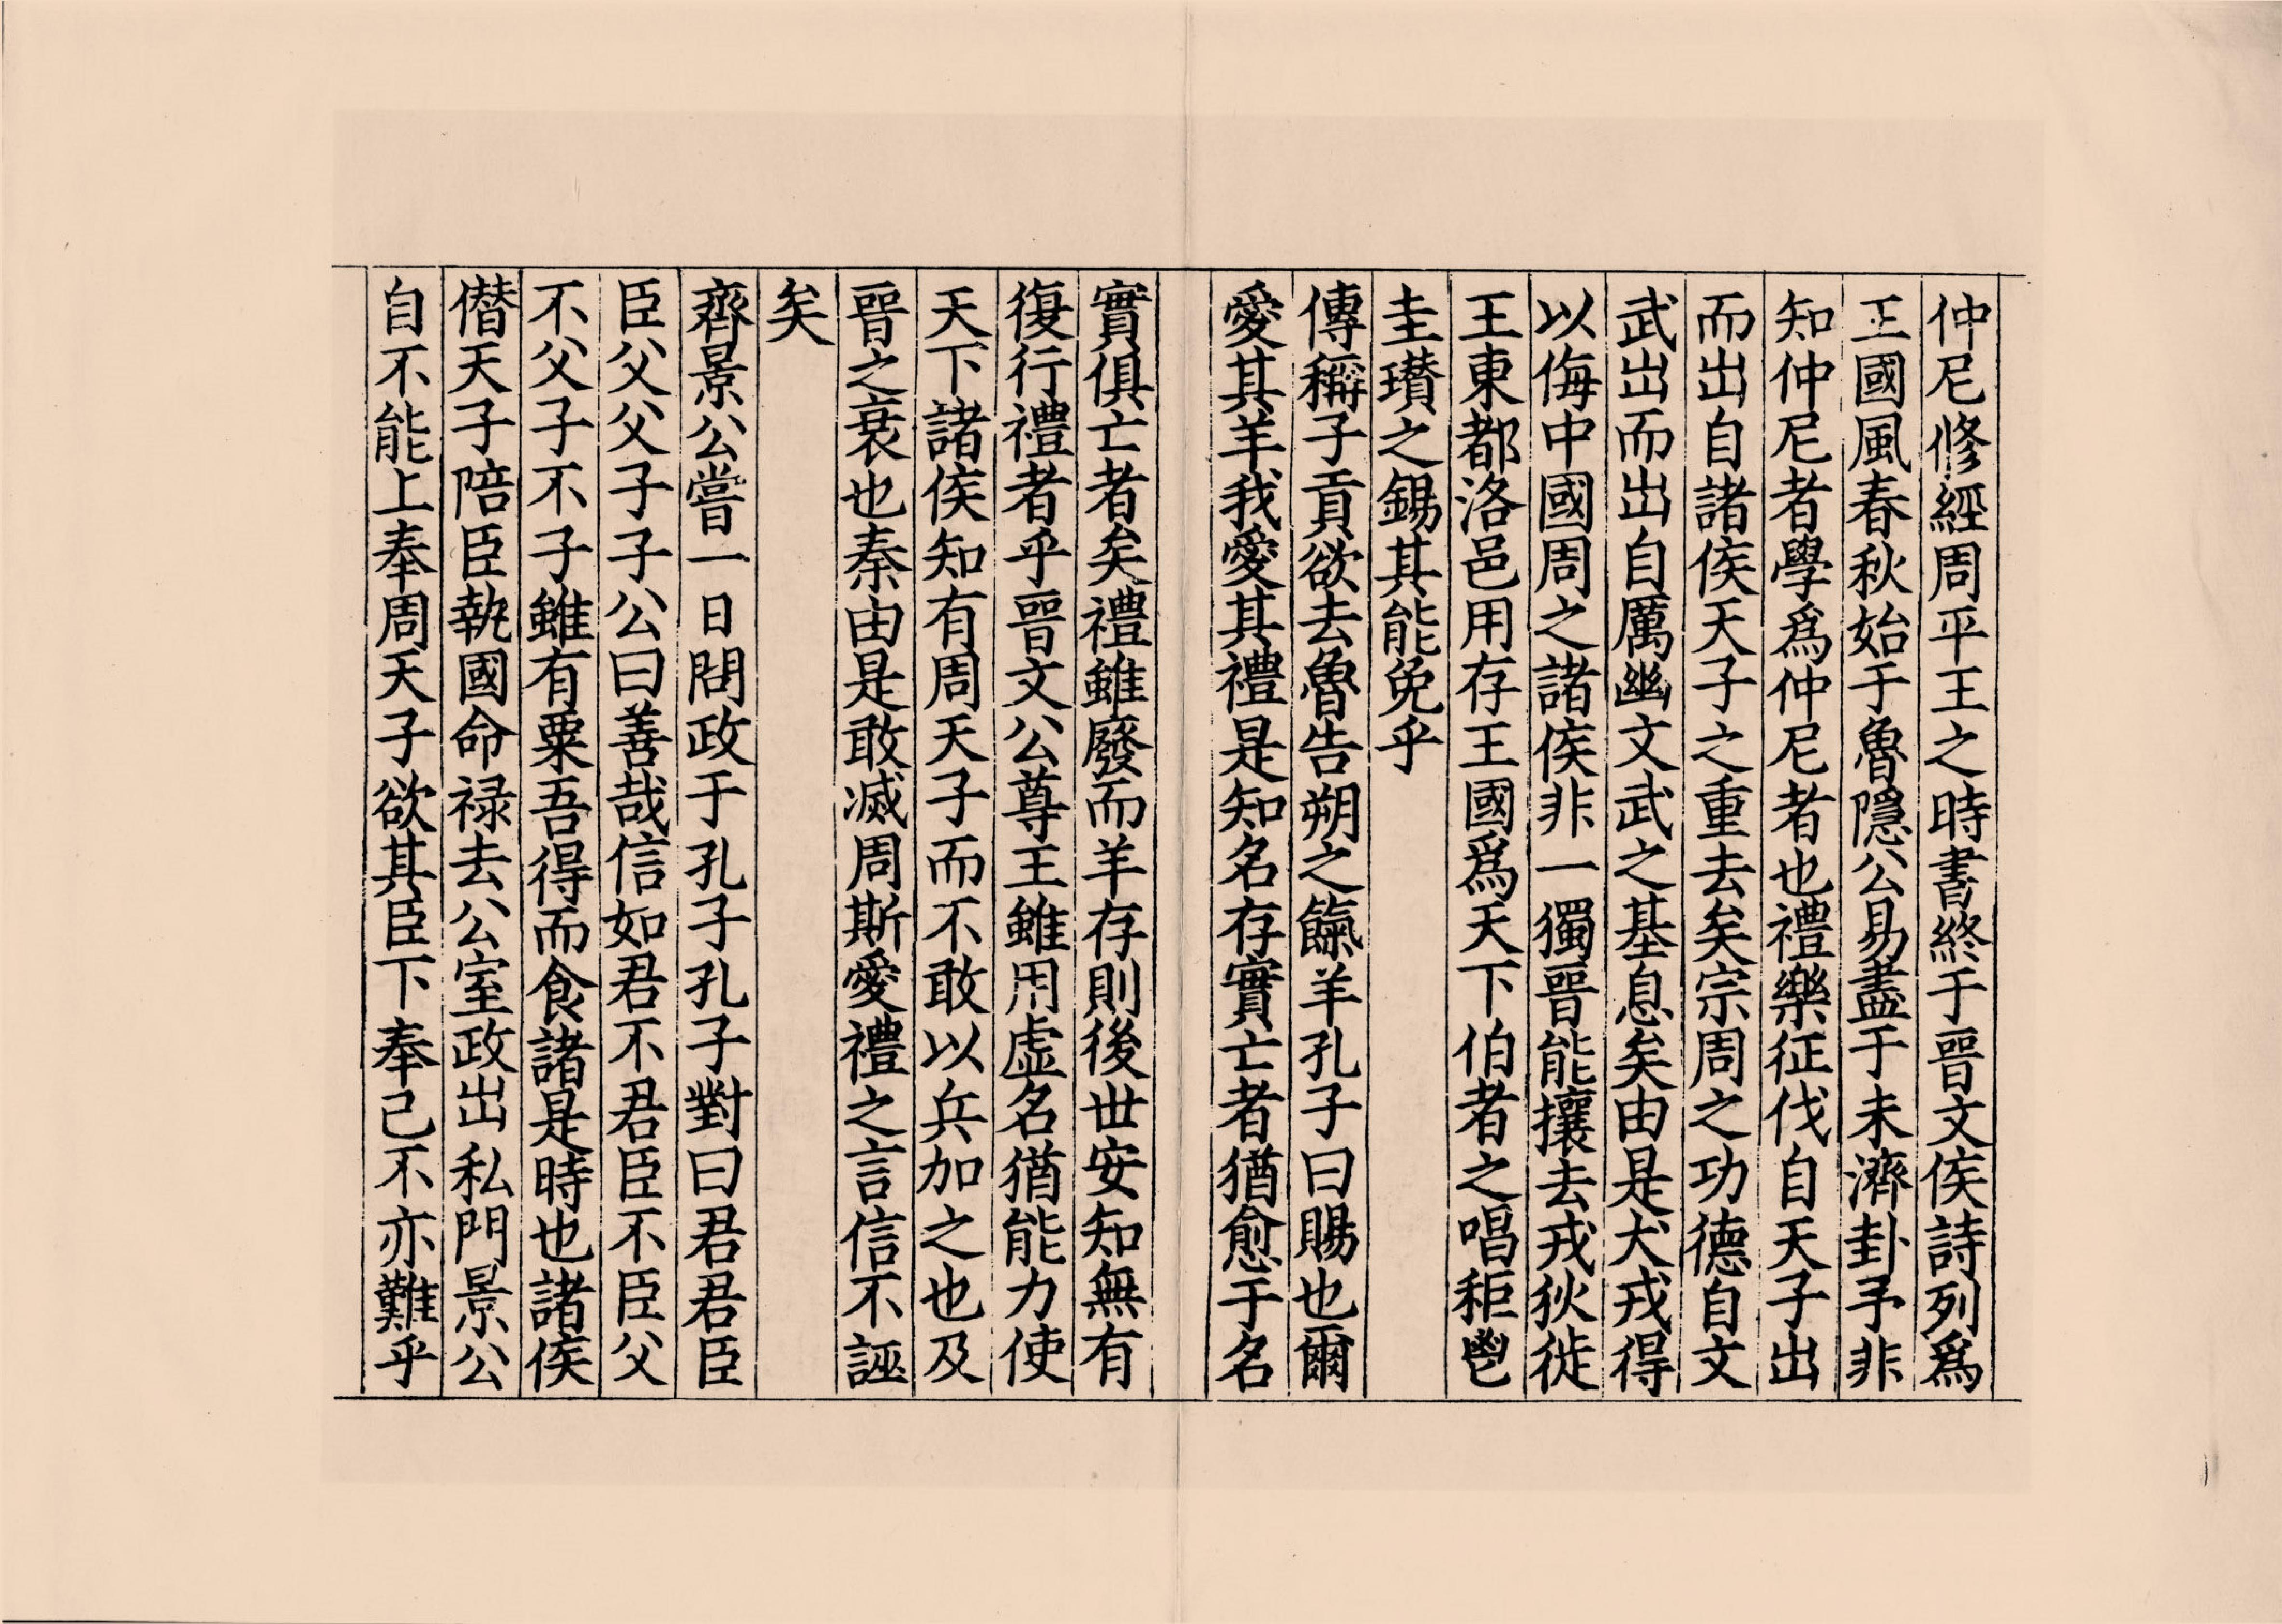 仲尼修經周平王之時書終于晉文侯詩列爲
王國風春秋始于魯隱公易盡于未濟卦予非
知仲尼者學爲仲尼者也禮樂征伐自天子出
而出自諸侯天子之重去矣宗周之功德自文
武出而出自厲幽文武之基息矣由是犬戎得
以侮中國周之諸侯非一獨晉能攘去戎狄徙
王東都洛邑用存王國爲天下伯者之唱秬鬯
圭瓚之錫其能免乎
傳稱子貢欲去魯告朔之餼羊孔子曰賜也爾
愛其羊我愛其禮是知名存實亡者猶愈于名
實俱亡者矣禮雖廢而羊存則後世安知無有
復行禮者乎晉文公尊王雖用虛名猶能力使
天下諸侯知有周天子而不敢以兵加之也及
晉之衰也秦由是敢滅周斯愛禮之言信不誣
矣
齊景公嘗一日問政于孔子孔子對曰君君臣
臣父父子子公曰善哉信如君不君臣不臣父
不父子不子雖有粟吾得而食諸是時也諸侯
僭天子陪臣執國命禄去公室政出私門景公
自不能上奉周天子欲其臣下奉己不亦難乎